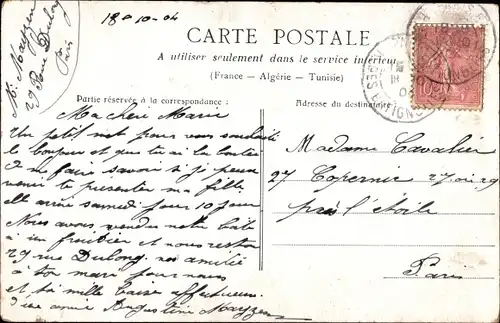 18-10-04
M. Mayzen
29 Rue Dulong
Paris
CARTE POSTALE
A utiliser seulement dans le service intérieur
(France - Algérie - Tunisie)
Partie réservée à la correspondance :
Adresse du destinataire
Ma chère Marie
Un petit mot pour vous souhaité
le bonjour et que tu ai la bontée
de me faire savoir si je peux
venir te presenter ma fille
elle arrive samedi pour 10 jour
Nous avons vendu notre
a un fruitier et nous restons
29 rue Dulong nos amitié
a ton mari pour nous
et toi mille baise affectueux
amie Augustine Mayzen
Madame Cavalier
27 Copernic
près l'étoile
Paris
10